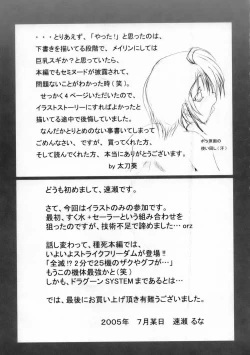 ・・・とりあえず、「やった！」と思ったのは、
下書きを描いてる段階で、メイリンにしては
巨乳スギか？と思っていたら、
本編でもセミヌードが披露されて、
問題ないことがわかった時(笑)。
せっかく4ページいただいたので、
イラストストーリーにすればよかったと
描いてる途中で後悔していました。
なんだかとりとめのない事書いてしまって
ごめんなさい。ですが、買ってくれた方、
そして読んでくれた方、本当にありがとうございます。
by 太刀葵
ボツ原画の
使い回し(汗)
どうも初めまして、速瀬です。
さて、今回はイラストのみの参加です。
最初、すく水＋セーラーという組み合わせを
狙ったのですが、技術不足で諦めました… orz
話し変わって、種死本編では、
いよいよストライクフリーダムが登場！
「全滅!? 2分で25機のザクやグフが…」
もうこの機体最強かと(笑)
しかも、ドラグーン SYSTEMまであるとは…
では、最後にお買い上げ頂き有難うございました。
2005年 7月某日 速瀬 るな